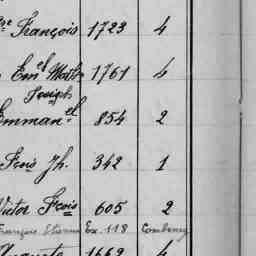 François 1723 4
Em^el Math^ 1761 4
Joseph
Emman^el 854 2
Fcois Jh. 342 1
Victor Fcois 605 2
François Etienne Ex. 118 Combeney
Auguste 1662 4